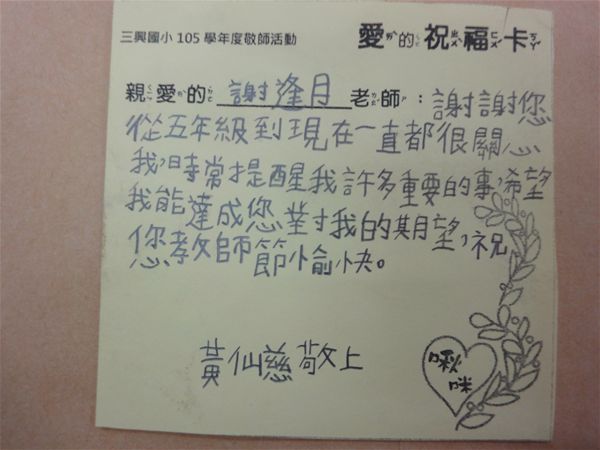 三興國小 105 學年度敬師活動
愛的祝福卡
親愛的 謝逢月 老師：謝謝您
從五年級到現在一直都很關心
我，時常提醒我許多重要的事，希望
我能達成您對我的期望，祝
您教師節愉快。
黃仙慈敬上
啾
咪